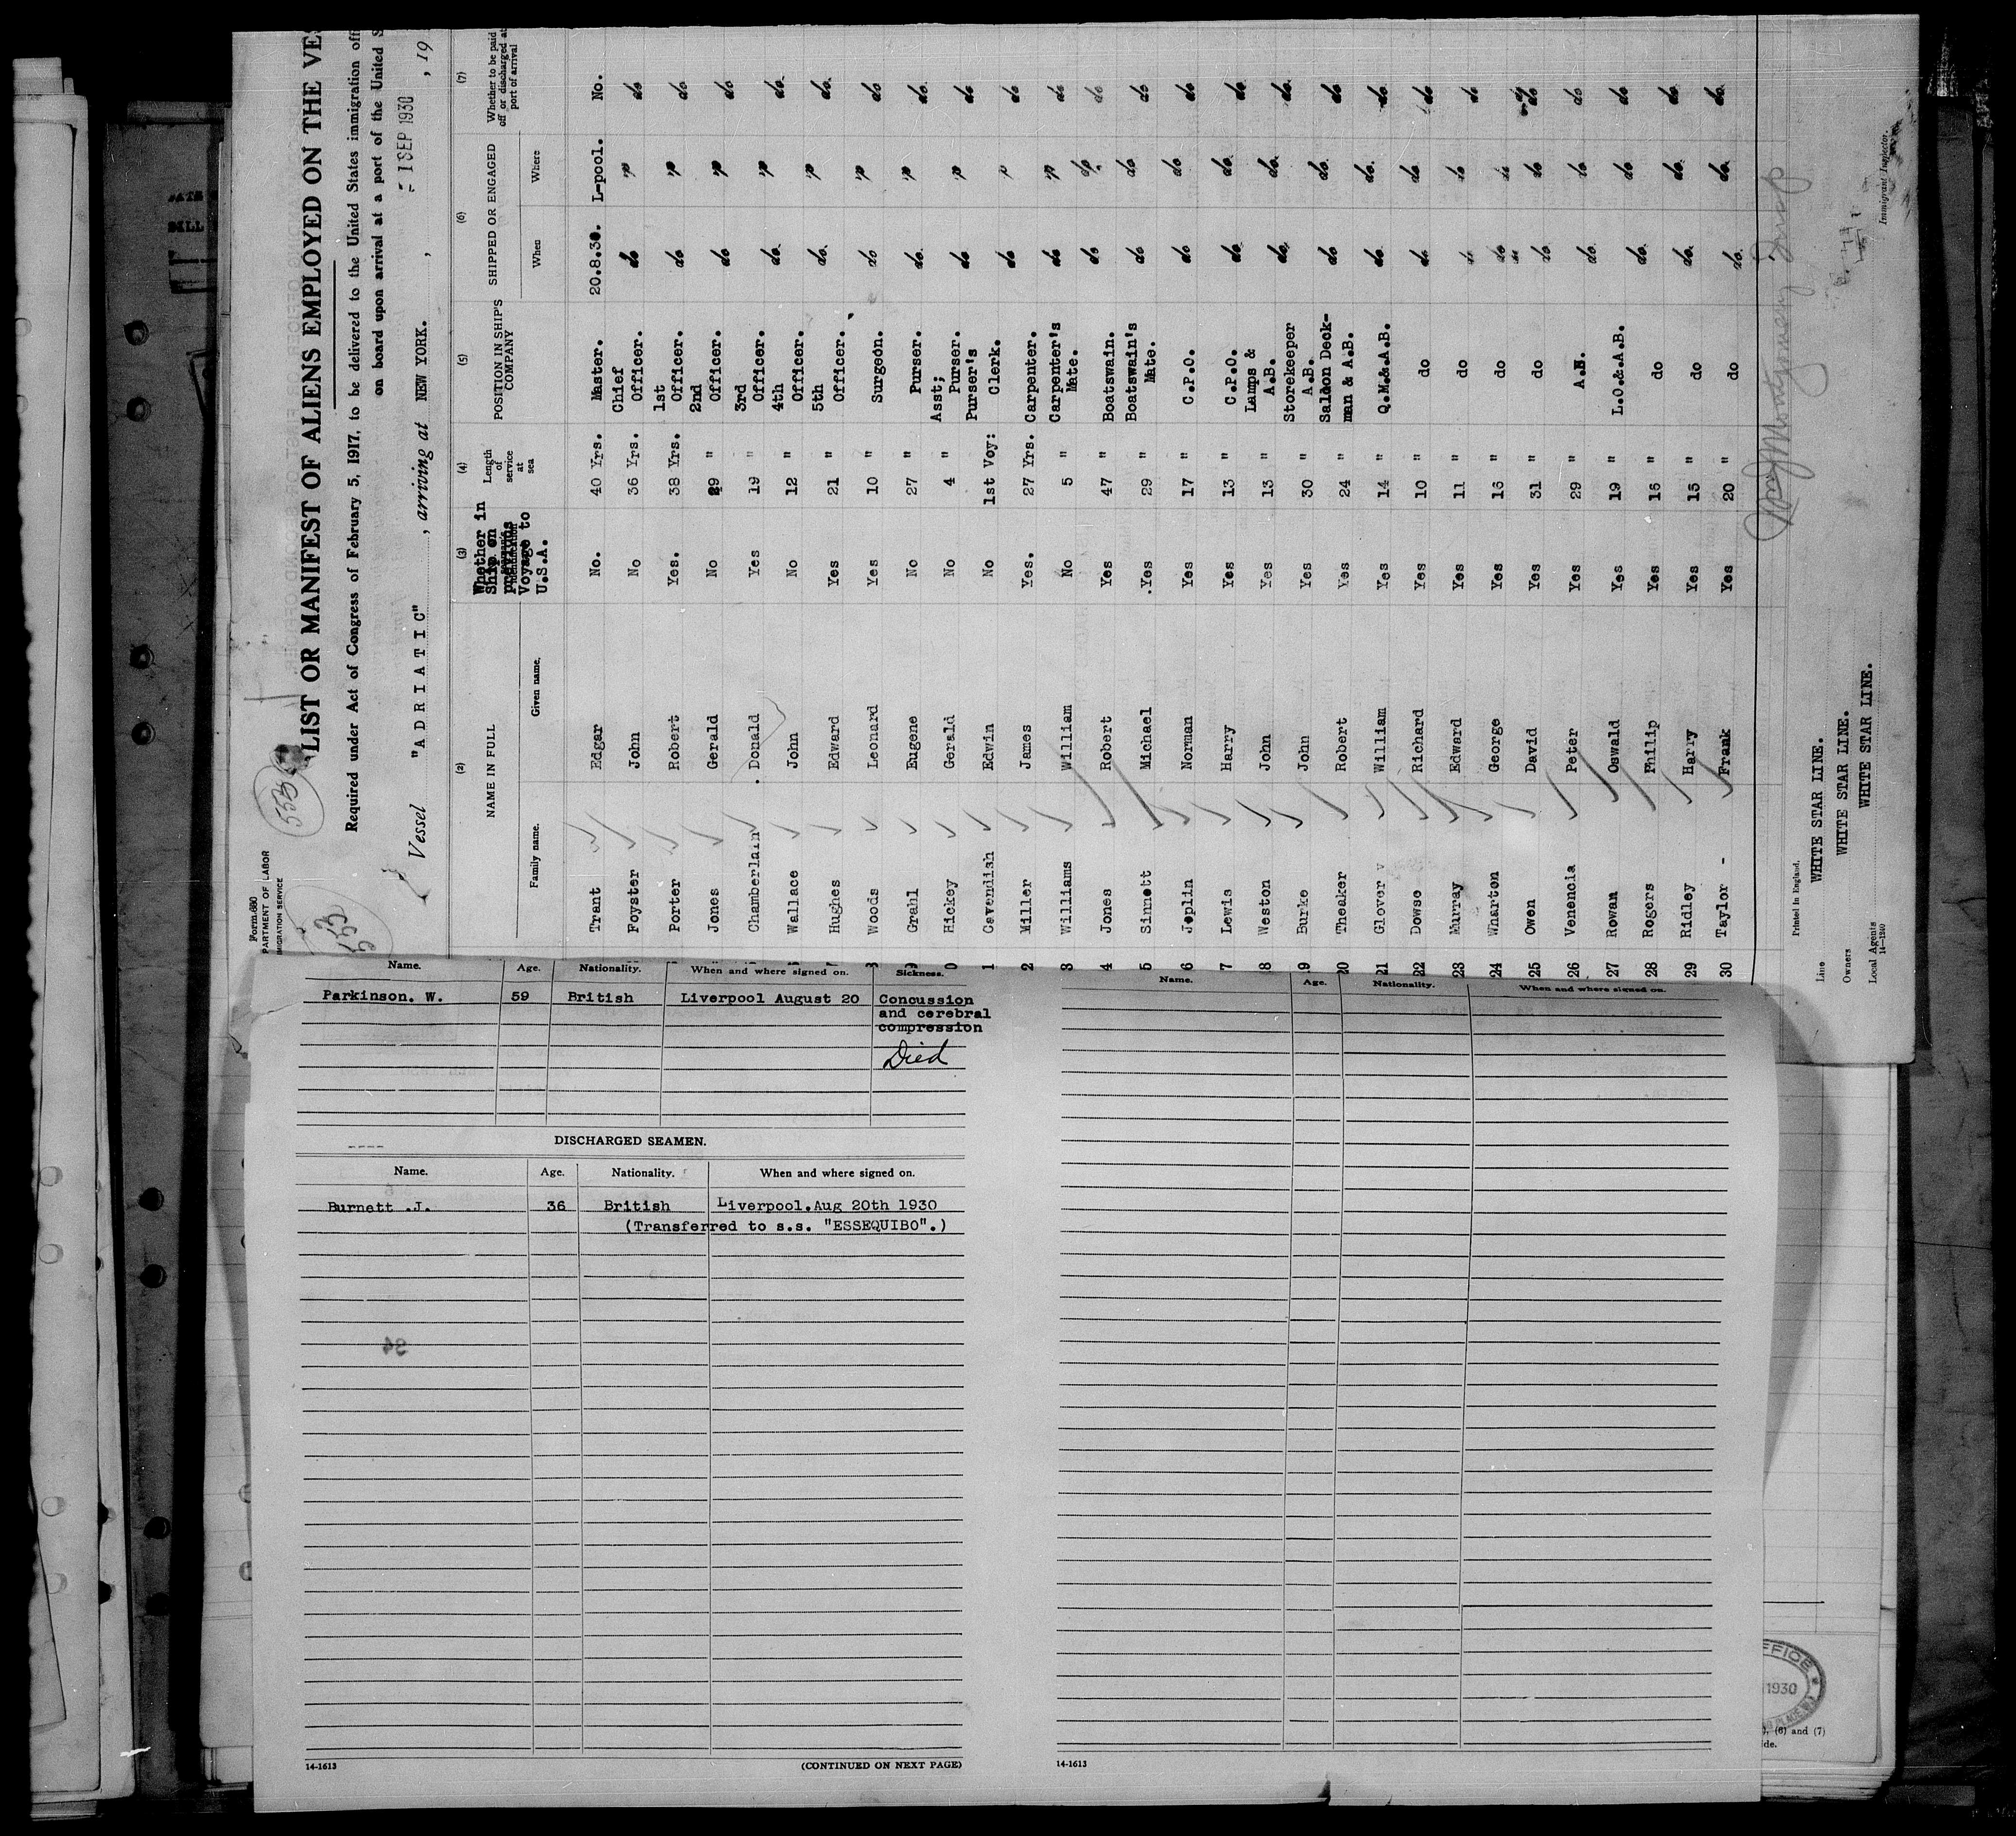 Form 680
PARTMENT OF LABOR
MIGRATION SERVICE
LIST OR MANIFEST OF ALIENS EMPLOYED ON THE VES
Required under Act of Congress of February 5, 1917, to be delivered to the United States immigration offi
on board upon arrival at a port of the United S
Vessel "ADRIATIC" , arriving at NEW YORK. , - 1 SEP 1930 , 19
(2) (3) (4) (5) (6) (7)
NAME IN FULL
Family name. Given name.
Whether in Ship on previous Voyage to U.S.A.
Length of service at sea
POSITION IN SHIP'S COMPANY
SHIPPED OR ENGAGED
When Where
Whether to be paid off or discharged at port of arrival
Trant Edgar No. 40 Yrs. Master. 20.8.30. L-pool. No.
Foyster John No 36 Yrs. Chief Officer. do do
Porter Robert Yes. 38 Yrs. 1st Officer. do do
Jones Gerald No 29 " 2nd Officer. do do
Chamberlain Donald Yes 19 " 3rd Officer. do do
Wallace John No 12 " 4th Officer. do do
Hughes Edward Yes 21 " 5th Officer. do do
Woods Leonard Yes 10 " Surgeon. do do
9 Grahl Eugene No 27 " Purser. do do
0 Hickey Gerald No 4 " Asst; Purser. do do
1 Cavendish Edwin No 1st Voy: Purser's Clerk. do do
2 Miller James Yes. 27 Yrs. Carpenter. do do
3 Williams William No 5 " Carpenter's Mate. do do do
4 Jones Robert Yes 47 " Boatswain. do do do
5 Sinnett Michael .Yes 29 " Boatswain's Mate. do do do
6 Joplin Norman Yes 17 " C.P.O. do do do
7 Lewis Harry Yes 13 " C.P.O. do do do
18 Weston John Yes 13 " Lamps & A.B. do do do
19 Burke John Yes 30 " Storekeeper A.B. do do do
20 Theaker Robert Yes 24 " Saloon Deckman & A.B. do do do
21 Glover William Yes 14 " Q.M.&.A.B. do do do
22 Dowse Richard Yes 10 " do do do do
23 Murray Edward Yes 11 " do do do do
24 Wharton George Yes 16 " do do do do
25 Owen David Yes 31 " do do do do
26 Venencia Peter Yes 29 " do do do
27 Rowan Oswald Yes 19 " L.O.&.A.B. do do do
28 Rogers Philip Yes 16 " do do do do
29 Ridley Harry Yes 15 " do do do do
30 Taylor - Frank Yes 20 " do do do do
Printed in England.
Line WHITE STAR LINE.
Owners WHITE STAR LINE.
Local Agents WHITE STAR LINE.
14—1240
Immigrant Inspector.
Name. Age. Nationality. When and where signed on. Sickness.
Parkinson. W. 59 British Liverpool August 20 Concussion
and cerebral
compression
Died
DISCHARGED SEAMEN.
Name. Age. Nationality. When and where signed on.
Burnett .J. 36 British Liverpool.Aug 20th 1930
(Transferred to s.s. "ESSEQUIBO".)
14-1613 (CONTINUED ON NEXT PAGE)
Name. Age. Nationality. When and where signed on.
14-1613
FFICE
1930
, (6) and (7)
ide.